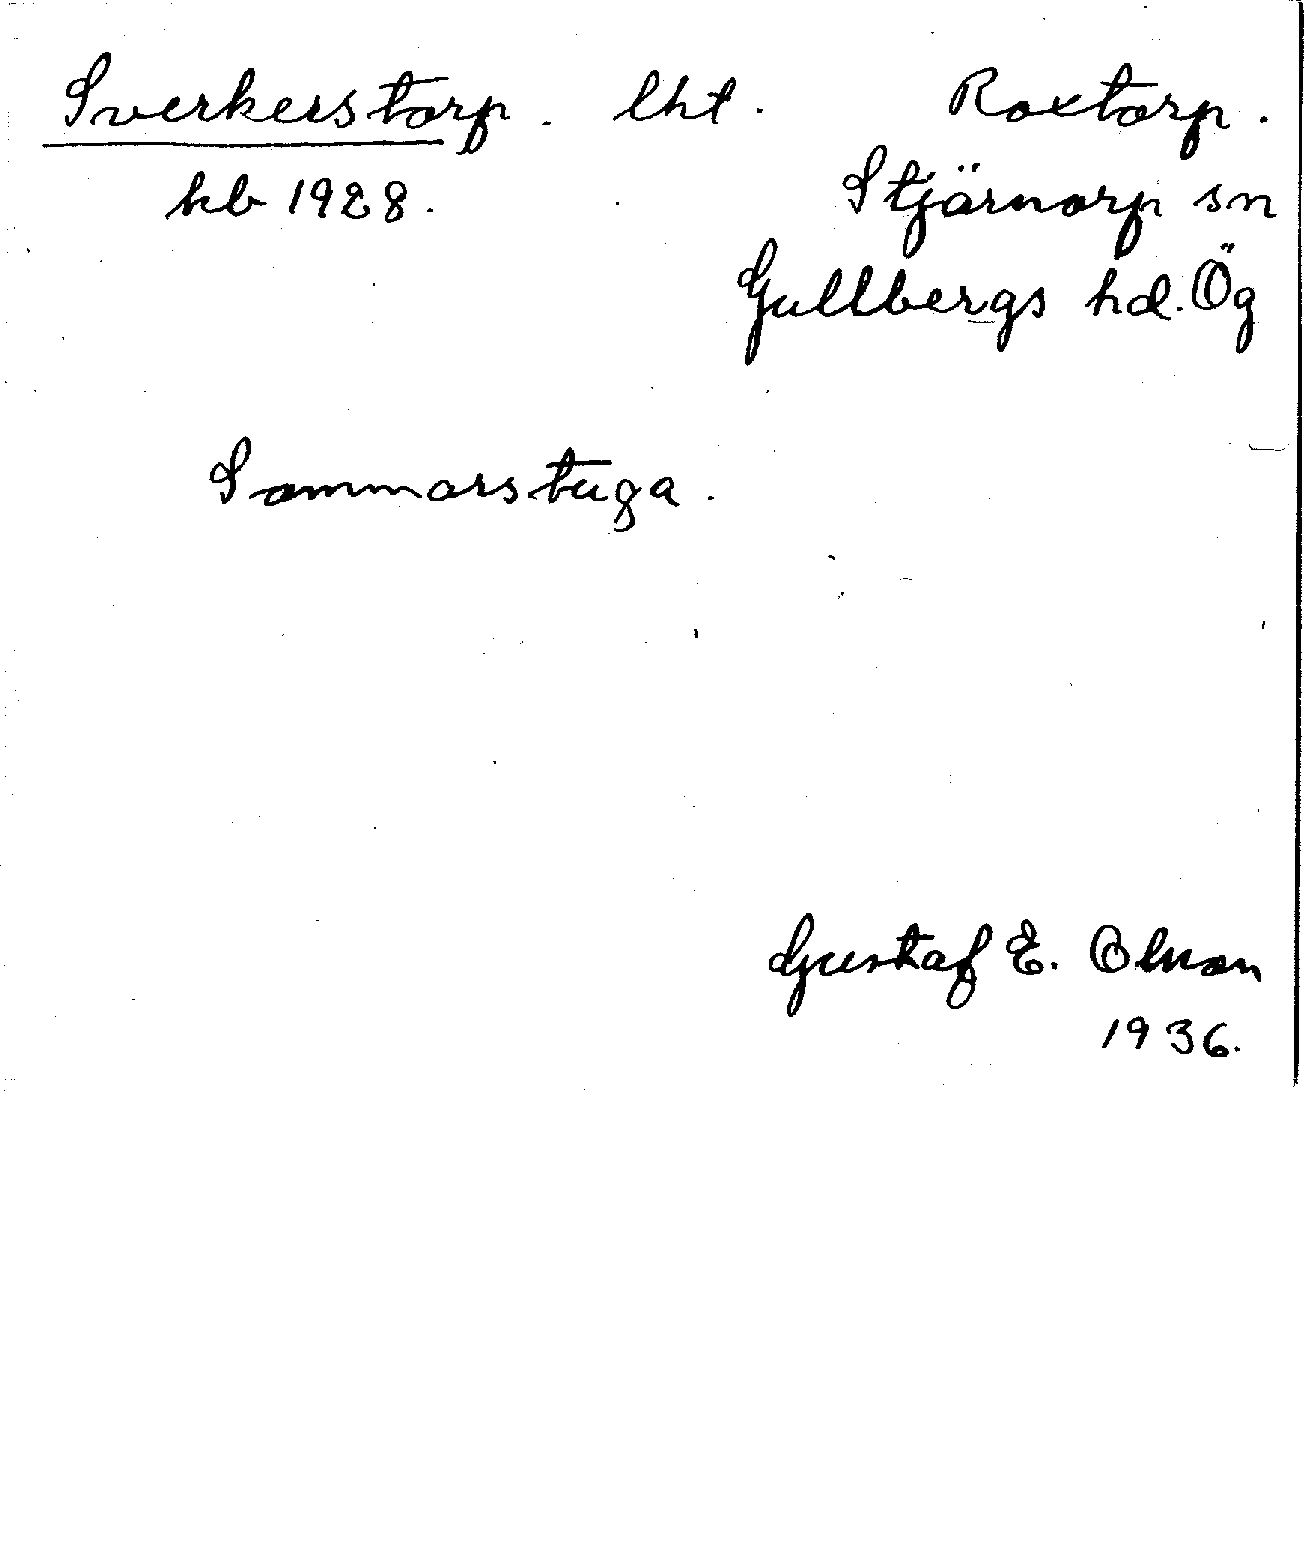 Sverkerstorp. lht. Roxtorp.
kb 1928. Stjärnorp sn
Gullbergs hd. Ög
Sommarstuga.
Gustaf E. Olsson
1936.